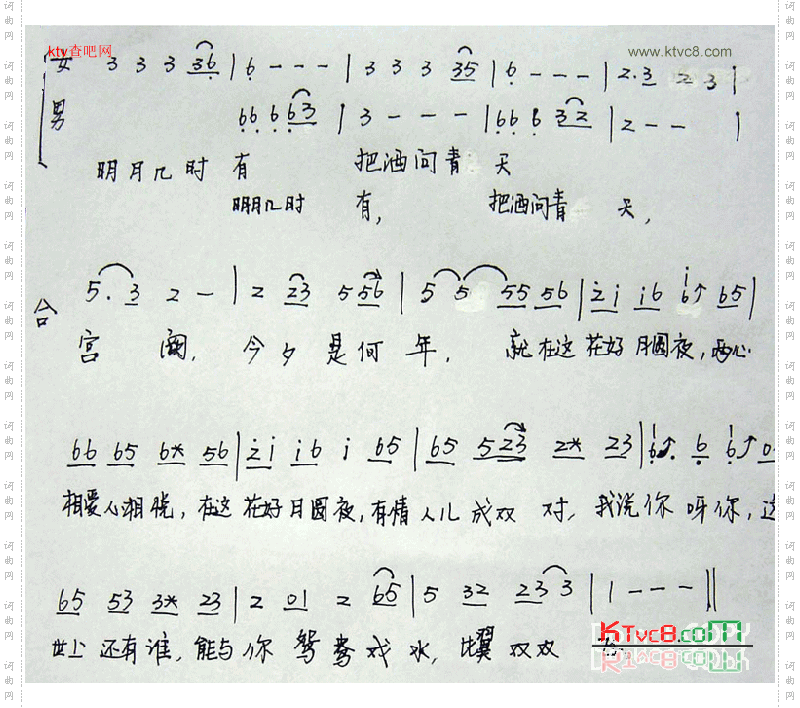 ktv查吧网 www.ktvc8.com
女 3 3 3 36 | 6 - - - | 3 3 3 35 | 6 - - - | 2. 3 2 3 |
男 66 6 63 | 3 - - - | 66 6 32 | 2 - - |
明月几时有 把酒问青天
明月几时有, 把酒问青天,
合 5. 3 2 - | 2 23 5 56 | 5 5 55 56 | 2i i6 6↑ 65 |
宫阙, 今夕是何年, 就在这花好月圆夜, 两心
66 65 6* 56 | 2i i6 i 65 | 65 5 23 2* 23 | 6↑. 6 6↑ 0
相爱心相悦, 在这花好月圆夜, 有情人儿成双对, 我说你呀你, 这
65 53 3* 23 | 2 01 2 65 | 5 32 23 3 | 1 - - - ||
世上还有谁, 能与你鸳鸯戏水, 比翼双双
KTvc8.com
词曲网